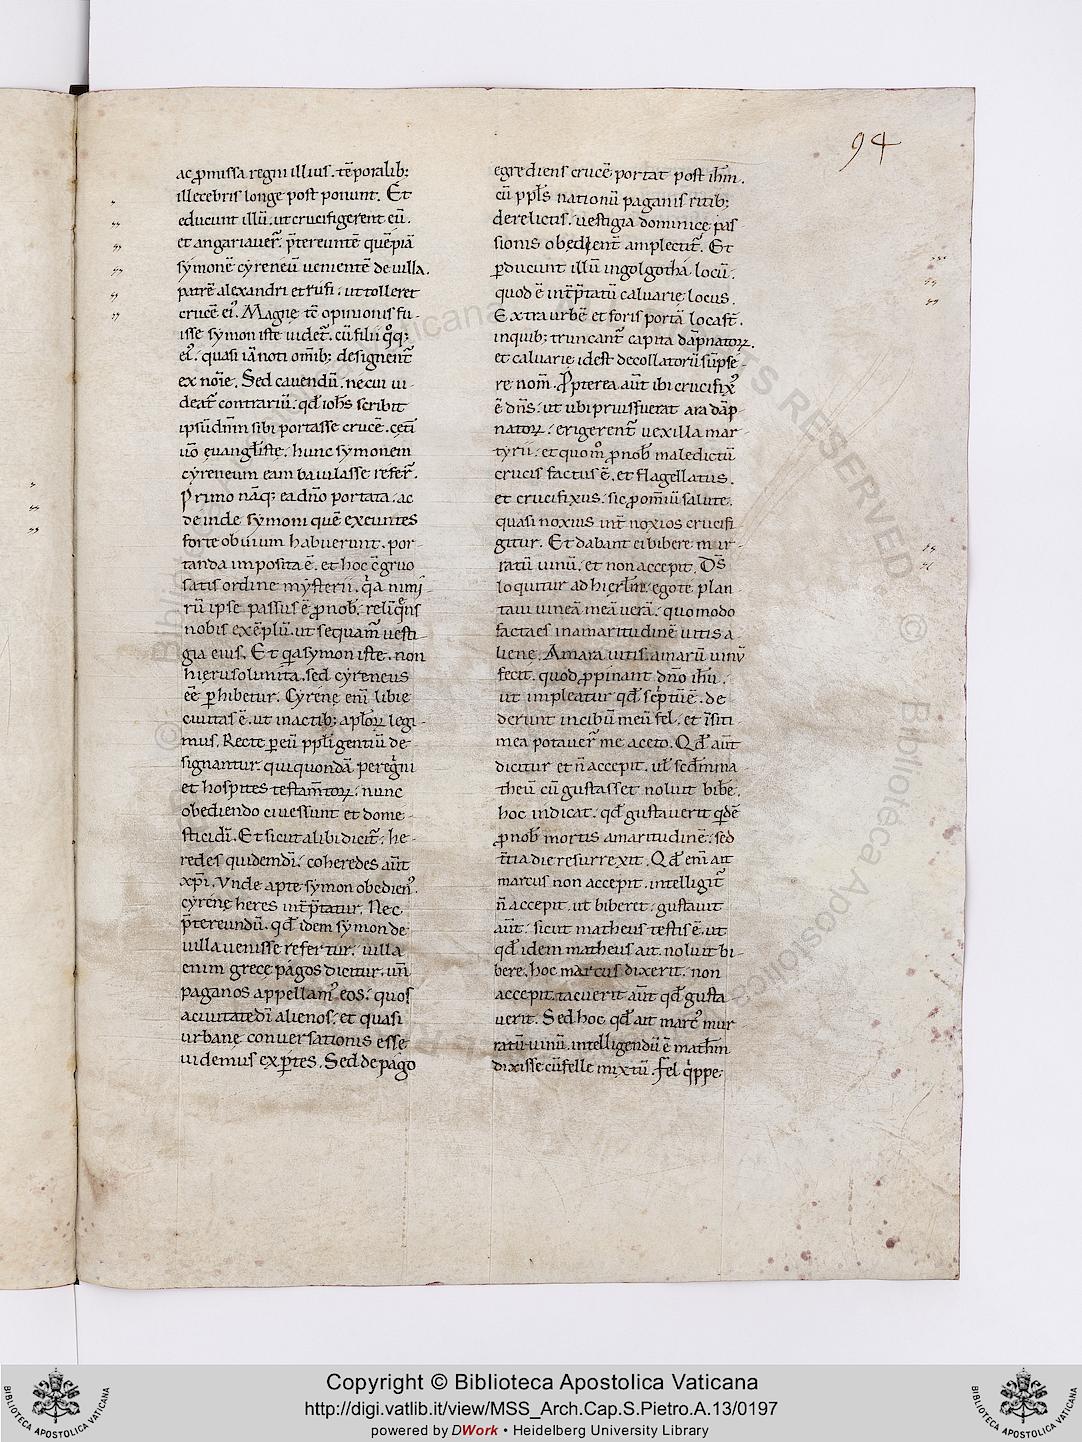 94
ac ꝓmissa regni illius. tēporalib;
illecebris longe post ponunt. Et
educunt illū. ut crucifigerent eū.
et angariauer̄. p̄tereuntē quēpiā
symonē cyreneū uenientē de uilla.
patrē alexandri et rufi. ut tolleret
crucē ei᾿. Magnę tē opinionis fu-
isse symon iste uidet̄. cū filii q͛q;
ei᾿. quasi iā noti omīb; designent̄
ex noīe. Sed cauendū. ne cui ui-
deat̄ contrariū. qd̄ ioh̄s scribit
ipsū dn̄m sibi portasse crucē. cęti
u͛o euangl̄istę. hunc symonem
cyreneum eam baiulasse refer̄.
Primo nāq; ea dn̄o portata. ac
deinde symoni quē exeuntes
forte obuium habuerunt. por-
tanda imposita ē. et hoc ꝯgruo
satis ordine mysterii. q͛a nimi
rū ipse passus ē ꝓ nob̄. relīq͛ns
nobis exēplū. ut sequam̄ uesti-
gia eius. Et q͛a symon iste. non
hierusolimita. sed cyreneus
ēē ꝑhibetur. Cyrene enī libię
ciuitas ē. ut in actib; aplo̅ꝝ legi-
mus. Recte ꝑ eū ppl̄i gentiū de-
signantur. qui quondā peregͥni
et hospites testam̄toꝝ. nunc
obediendo ciues sunt et dome-
stici dī. Et sicut alibi dicit̄. he-
redes quidem dī. coheredes aūt
xp̄i. Vnde apte symon obediens᾿.
cyrene heres int̄p̄tatur. Nec
p̄tereundū. qd̄ idem symon de
uilla uenisse refertur. uilla
enim grece pagos dicitur. un̄
paganos appellam᾿ eos. quos
a ciuitate dī alienos. et quasi
urbanę conuersationis esse
uidemus exꝑtes. Sed de pago
egrediens crucē portat post ih̄m.
cū ppl̄s nationū paganis ritib;
derelictis. uestigia dominicę pas-
sionis obedient̄ amplectit̄. Et
ꝑducunt illū in golgotha locū.
quod ē int̄p̄tatū caluarię locus.
Extra urbē et foris portā loca st̄.
in quib; truncant̄ capita dāpnatoꝝ.
et caluarię id est decollatorū sūpse-
re nom̄. Ꝓpterea aūt ibi crucifix᾿
ē dn̄s. ut ubi prius fuerat ara dāp-
natoꝝ. erigerent̄ uexilla mar-
tyrii. et quom᾿ ꝓ nob̄ maledictū
crucis factus ē. et flagellatus.
et crucifixus. sic ꝓ om̄iū salute.
quasi noxius int̄ noxios crucifi
gitur. Et dabant ei bibere mir-
ratū uinū. et non accepit. Ds̄
loquitur ad hierl̄m. ego te plan
taui uineā meā uerā. quomodo
facta es in amaritudinē uitis a
lienę. Amara uitis. amarū uinū
fecit. quod ꝓpinant dn̄o ih̄u.
ut impleatur qd̄ scͥptū ē. de
derunt in cibū meū fel. et ī siti
mea potauer̄ me aceto. Qd̄ aūt
dicitur et n̄ accepit. ul̄ sed̄m ma
theū cū gustasset noluit bibe.
hoc indicat. qd̄ gustauerit qͥdē
ꝓ nob̄ mortis amaritudinē. sed
t̄tia die resurrexit. Qd̄ enī ait
marcus non accepit. intelligit̄
n̄ accepit ut biberet. gustauit
aūt. sicut matheus testis ē. ut
qd̄ idem matheus ait. noluit bi-
bere. hoc marcus dixerit. non
accepit. tacuerit aūt qd̄ gusta
uerit. Sed hoc qd̄ ait marc᾿ mur
ratū uinū. intelligendū ē math̄m
dixisse cū felle mixtū. Fel qͥppe
Copyright © Biblioteca Apostolica Vaticana
http://digi.vatlib.it/view/MSS_Arch.Cap.S.Pietro.A.13/0197
powered by DWork • Heidelberg University Library